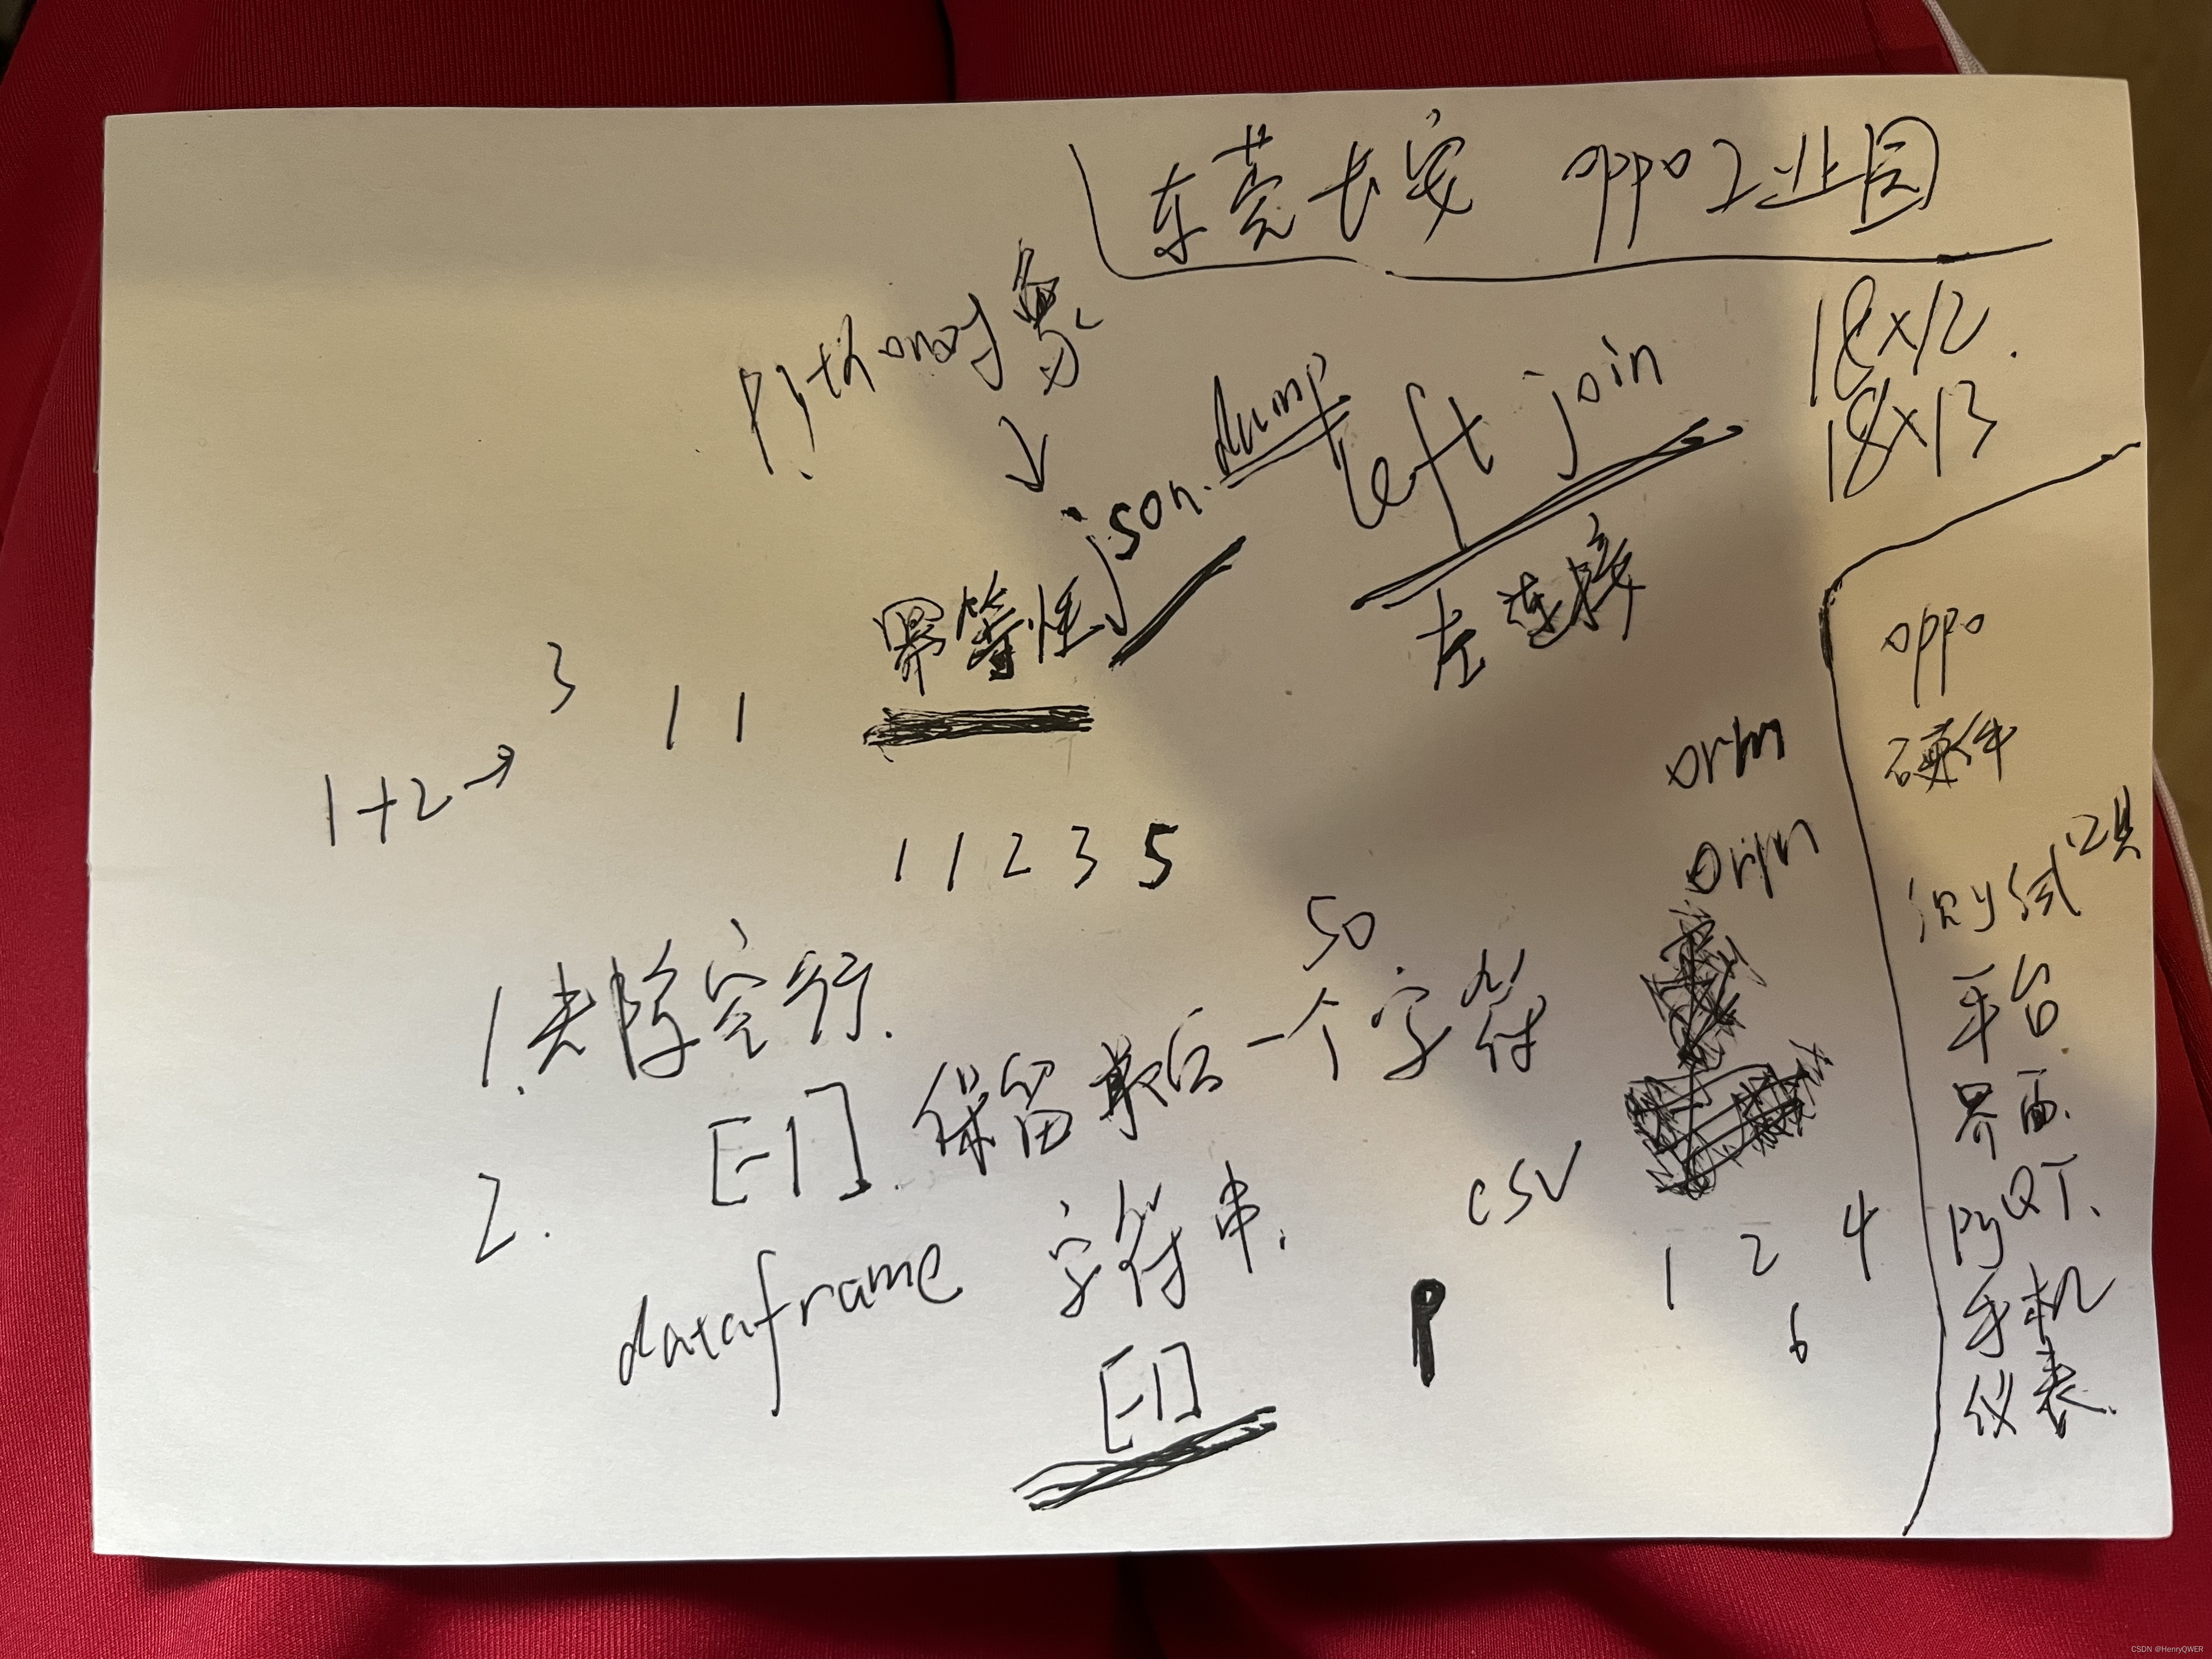 东莞长安 oppo工业园
18×12
18×13
Python对象
↓
json.dump
left join
左连接
幂等性
1+2→3
1 1
1 1 2 3 5
orm
orm
oppo
硬件
测试工具
平台
界面
PyQT、
手机
仪表.
1.去除空行.
50
[-1] 保留最后一个字符
2.
dataframe 字符串.
[-1]
csv
P
1 2 4
6
CSDN @HenryQWER